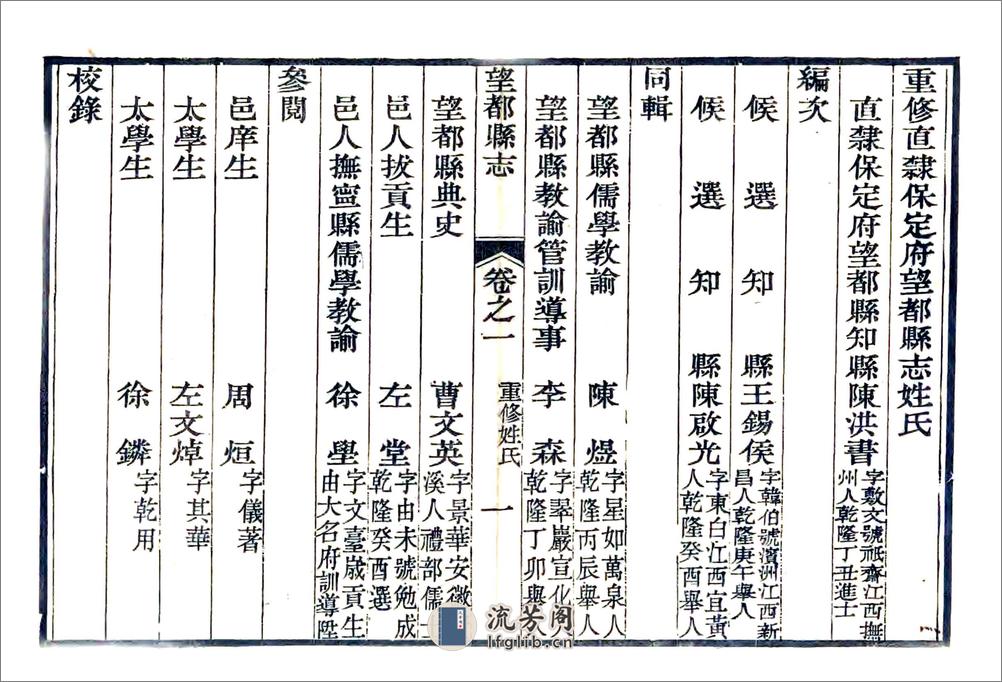 重修直隸保定府望都縣志姓氏
直隸保定府望都縣知縣陳洪書字敷文號祇齋江西撫州人乾隆丁丑進士
編次
候選知縣王錫侯字韓伯號濱洲江西新昌人乾隆庚午舉人
候選知縣陳啟光字東白江西宜黃人乾隆癸酉舉人
同輯
望都縣儒學教諭陳煜字星如萬泉人乾隆丙辰舉人
望都縣教諭管訓導事李森字翠巖宣化人乾隆丁卯舉人
望都縣志 卷之一 重修姓氏 一
望都縣典史曹文英字景華安徽溪人禮部儒
邑人拔貢生左堂字由未號勉成乾隆癸酉選
邑人撫寧縣儒學教諭徐壆字文臺歲貢生由大名府訓導陞
參閱
邑庠生周烜字儀著
太學生左文焯字其華
太學生徐鏻字乾用
校錄
流芳阁
lfglib.cn